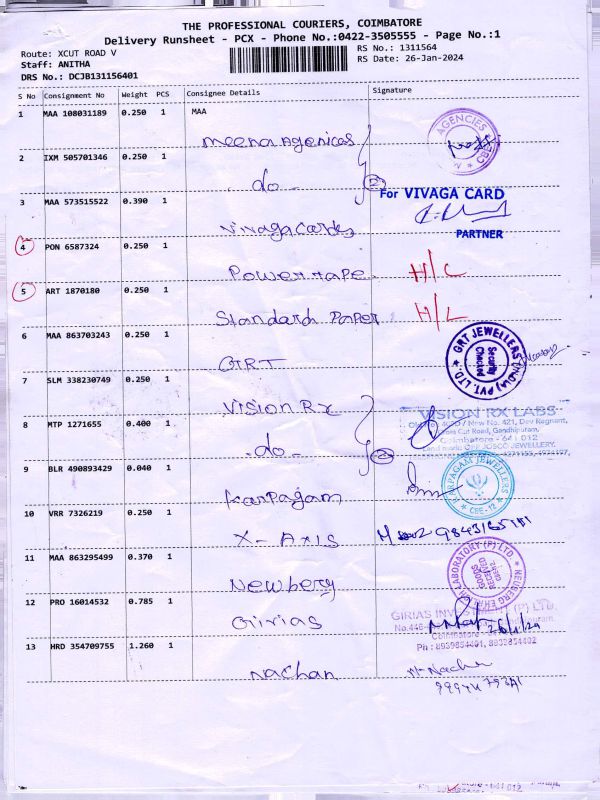 THE PROFESSIONAL COURIERS, COIMBATORE
Delivery Runsheet - PCX - Phone No.:0422-3505555 - Page No.:1
Route: XCUT ROAD V
RS No.: 1311564
Staff: ANITHA
RS Date: 26-Jan-2024
DRS No.: DCJB131156401
S No Consignment No Weight PCS Consignee Details Signature
1 MAA 108031189 0.250 1 MAA
Meena Agenicas
AGENCIES
2 IXM 505701346 0.250 1
do
For VIVAGA CARD
3 MAA 573515522 0.390 1
Vivaga Cards
PARTNER
4 PON 6587324 0.250 1
Power tape H/C
5 ART 1870180 0.250 1
Standard Paper H/L
6 MAA 863703243 0.250 1
GRT
GRT JEWELLERS (INDIA) PVT. LTD.
Security Checked
7 SLM 338230749 0.250 1
Vision Rx
VISION RX LABS
8 MTP 1271655 0.400 1
do
New No. 421, Dev Regnant,
Cut Road, Gandhipuram,
Coimbatore - 641 012
9 BLR 490893429 0.040 1
Karpagam
KARPAGAM JEWELLERS
CBE-12
10 VRR 7326219 0.250 1
X-Axis
9843165181
11 MAA 863295499 0.370 1
Newberg
LABORATORY (P) LTD.
GOODS RECEIVED
12 PRO 16014532 0.785 1
Girias
GIRIAS INVESTMENT (P) LTD,
26/1/24
Ph : 8939854401, 8939854402
13 HRD 354709755 1.260 1
Nachan